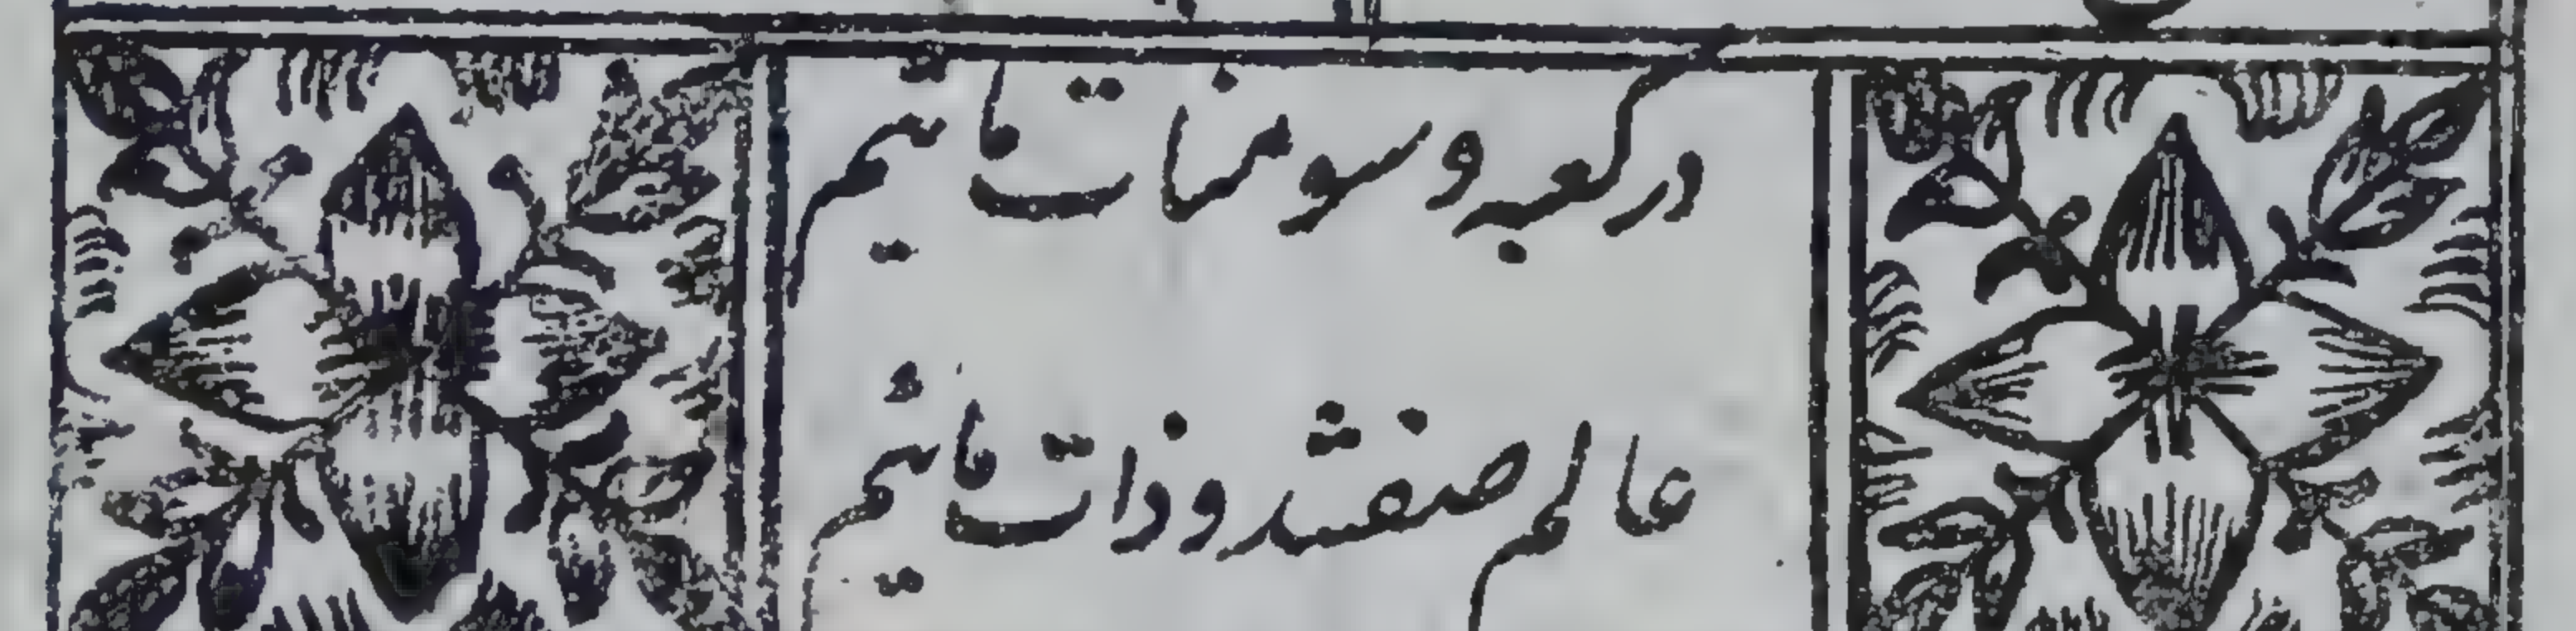 در کعبه و سومنات مائیم
عالم صفتند و ذات مائیم